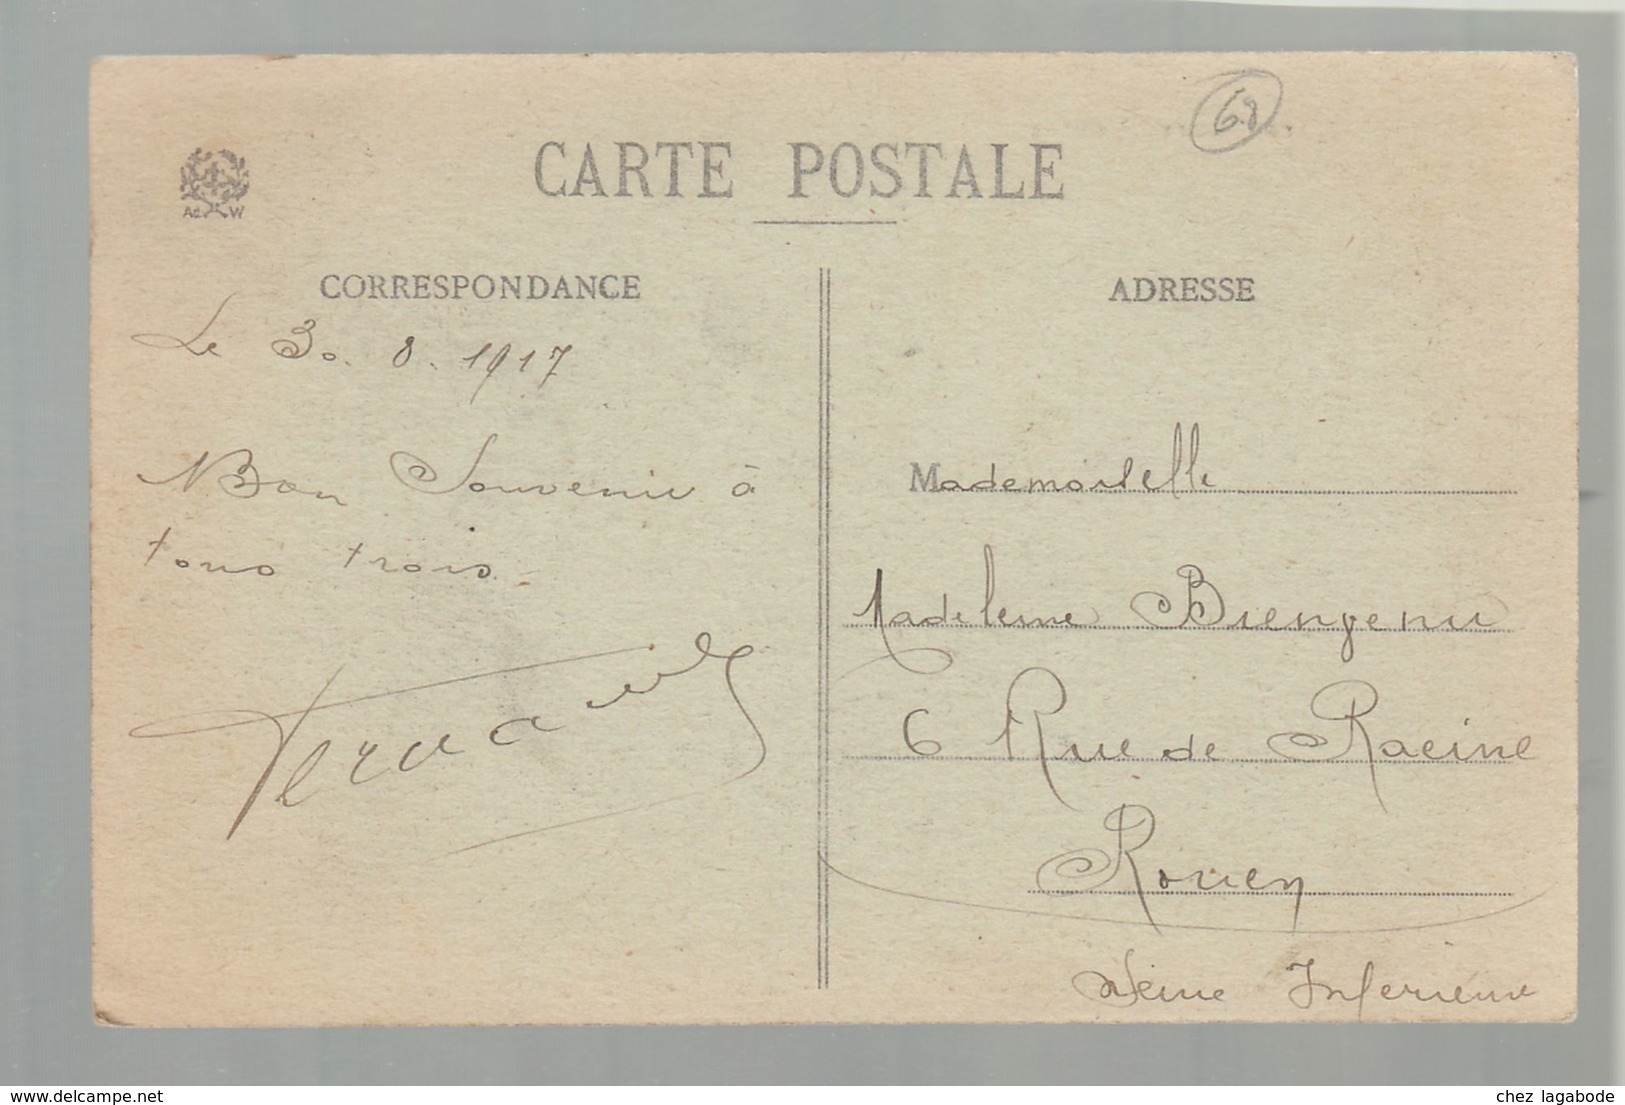 68
CARTE POSTALE
Ad W
CORRESPONDANCE
Le 30. 8. 1917
Bon Souvenir à
tous trois.
Fernand
ADRESSE
Mademoiselle
Madeleine Bienvenu
6 Rue de Racine
Rouen
Seine Inferieure
delcampe.net
chez lagabode